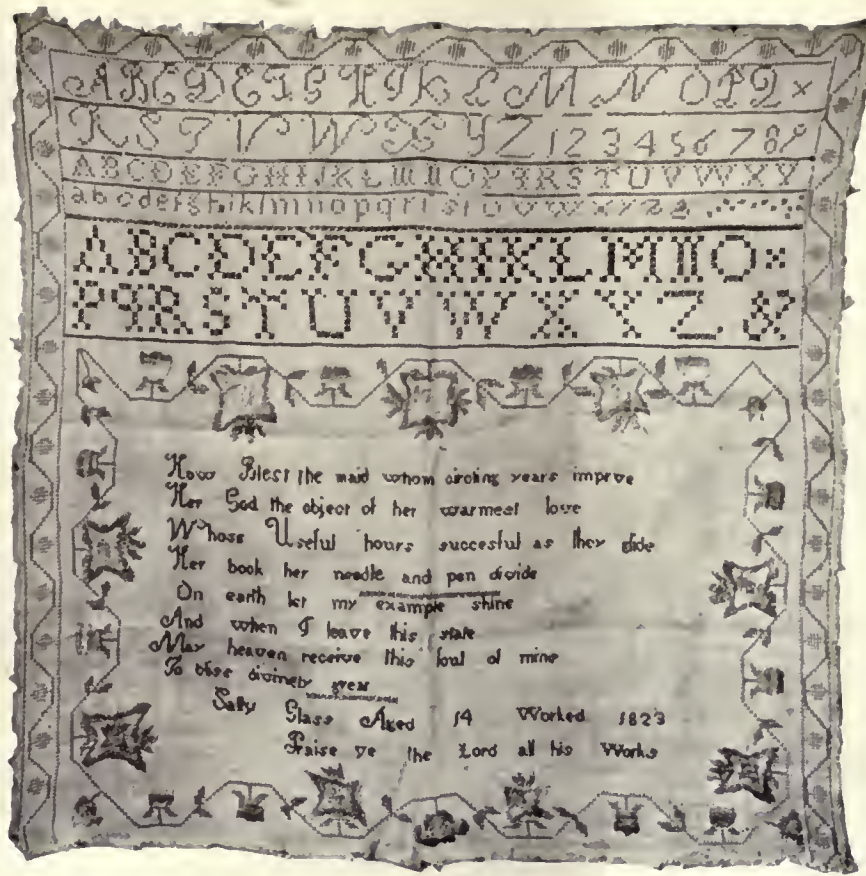 A B C D E F G H I K L M N O P Q ×
R S T V W X Y Z 1 2 3 4 5 6 7 8 9
A B C D E F G H I J K L M N O P Q R S T U V W X Y
a b c d e f g h i k l m n o p q r ſ s t u v w x y z &
A B C D E F G H I K L M N O
P Q R S T U V W X Y Z &
How Blest the maid whom circling years improve
Her God the object of her warmest love
Whose Useful hours succesful as they glide
Her book her needle and pen divide
On earth let my example shine
And when I leave this state
May heaven receive this soul of mine
To bliss divinely great
Sally Glass Aged 14 Worked 1823
Praise ye the Lord all his Works